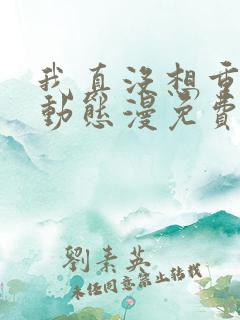 我真沒想重
動態漫免費
劉素英
未经同意禁止转载